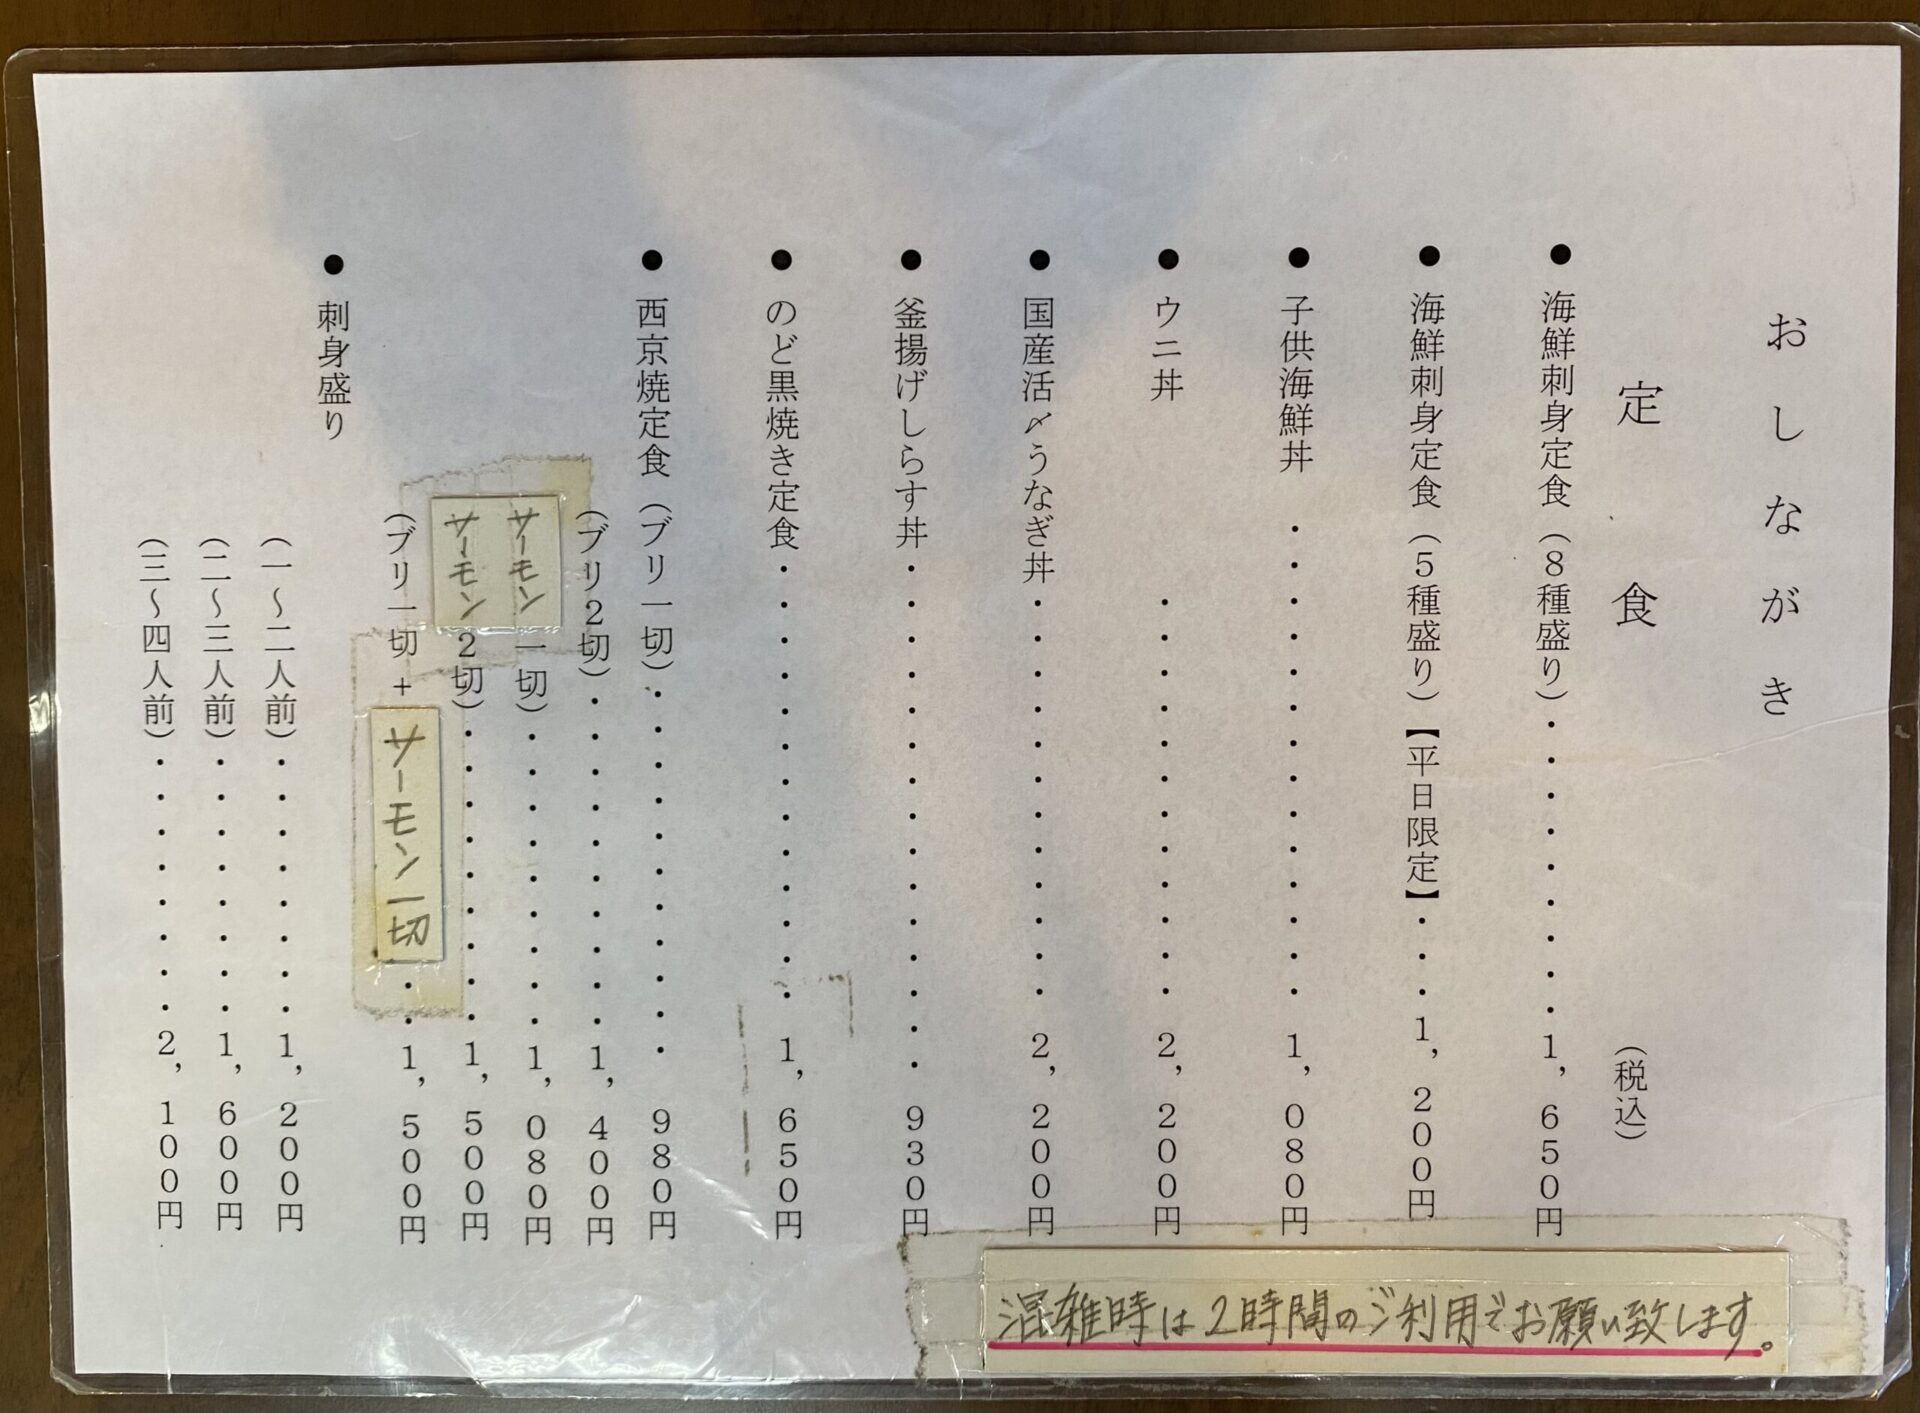 おしながき
定食 (税込)
●海鮮刺身定食(8種盛り)・・・・・・・・・1,650円
●海鮮刺身定食(5種盛り)【平日限定】・・・1,200円
●子供海鮮丼・・・・・・・・・・・・・・1,080円
●ウニ丼・・・・・・・・・・・・2,200円
●国産活〆うなぎ丼・・・・・・・・・・・・2,200円
●釜揚げしらす丼・・・・・・・・・・・・・・・930円
●のど黒焼き定食・・・・・・・・・・・・・1,650円
●西京焼定食(ブリ一切)・・・・・・・・・・・980円
(ブリ2切)・・・・・・・・・・1,400円
サーモン一切)・・・・・・・・・1,080円
サーモン2切)・・・・・・・・・1,500円
(ブリ一切+サーモン一切・・1,500円
●刺身盛り
(一〜二人前)・・・・・・・・1,200円
(二〜三人前)・・・・・・・・1,600円
(三〜四人前)・・・・・・・・2,100円
混雑時は2時間のご利用でお願い致します。